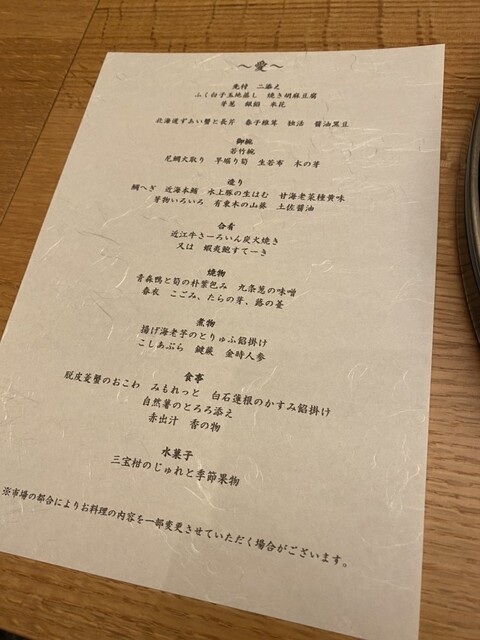 ～愛～
先付　二添え
ふく白子玉地蒸し　焼き胡麻豆腐
芽葱　銀餡　米花
北海道ずわい蟹と長芹　春子椎茸　独活　醤油黒豆
御椀
若竹椀
尼鯛火取り　早堀り筍　生若布　木の芽
造り
鯛へぎ　近海本鮪　水上豚の生はむ　甘海老菜種黄味
芽物いろいろ　有東木の山葵　土佐醤油
合肴
近江牛さーろいん炭火焼き
又は　蝦夷鮑すてーき
焼物
青森鴨と筍の朴葉包み　九条葱の味噌
春衣　こごみ、たらの芽、蕗の薹
煮物
揚げ海老芋のとりゅふ餡掛け
こしあぶら　鍵蕨　金時人参
食事
脱皮菱蟹のおこわ　みもれっと　白石蓮根のかすみ餡掛け
自然薯のとろろ添え
赤出汁　香の物
水菓子
三宝柑のじゅれと季節果物
※市場の都合によりお料理の内容を一部変更させていただく場合がございます。